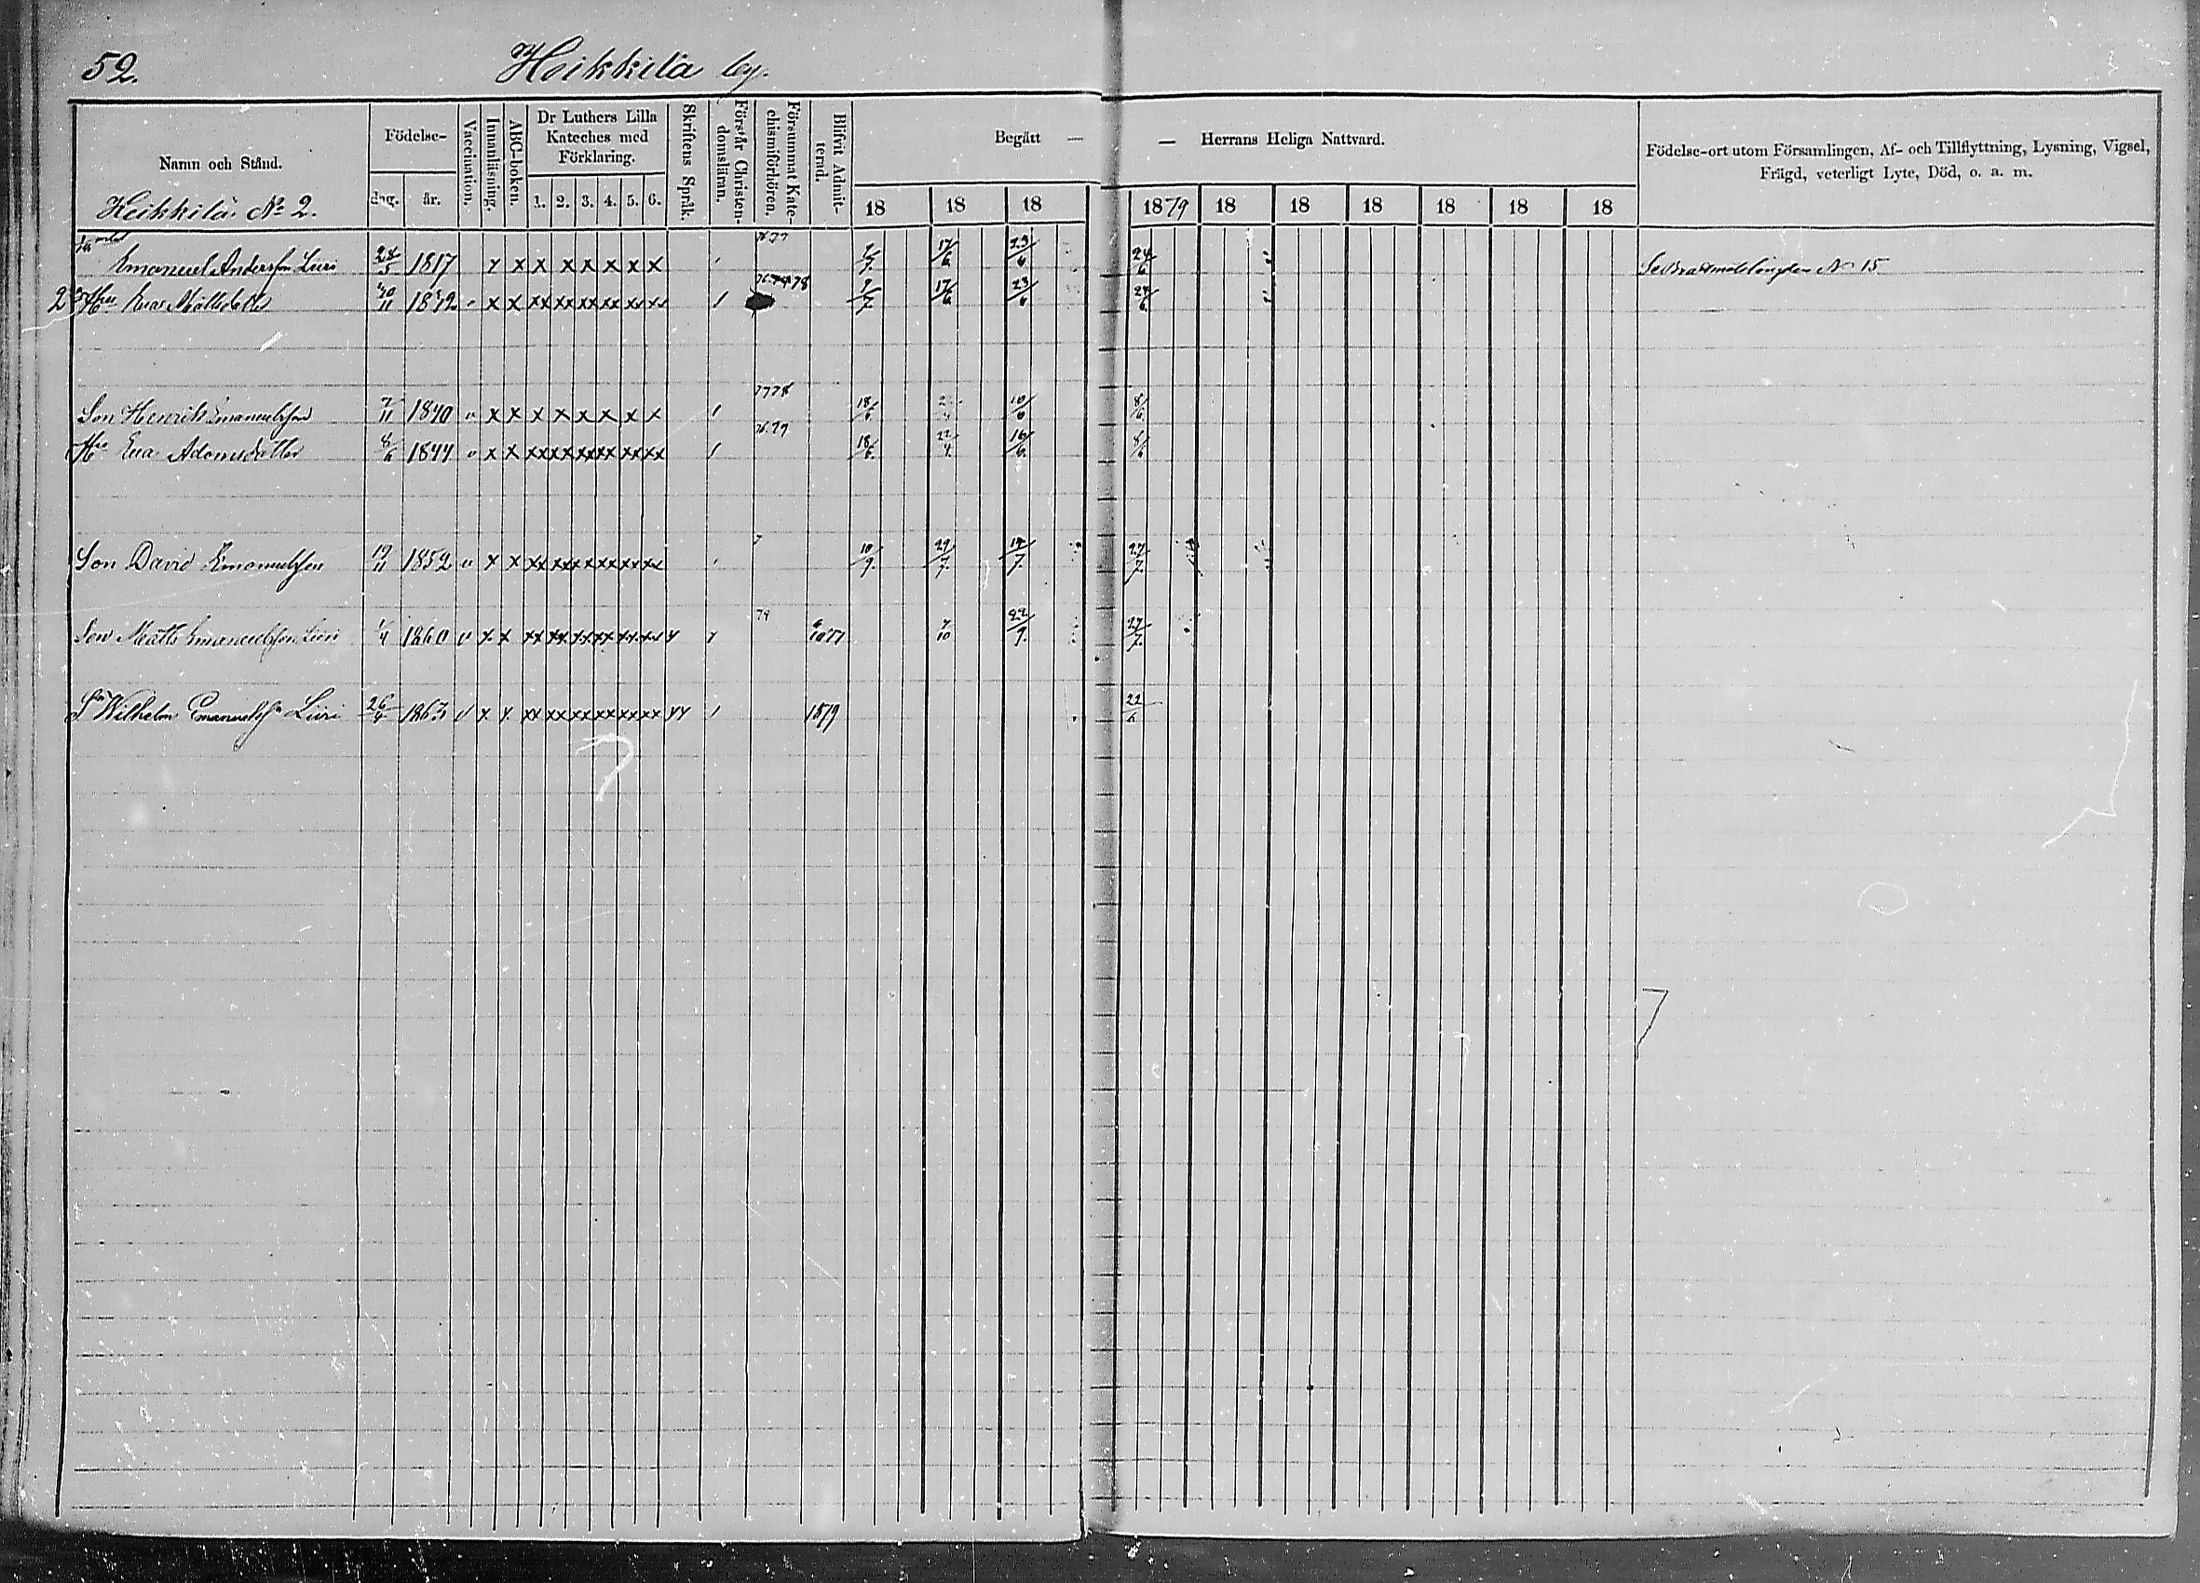 52.
Heikkilä by.
Namn och Stånd.
Födelse-
dag.
år.
Vaccination.
Innanläsning.
ABC-boken.
Dr Luthers Lilla
Kateches med
Förklaring.
1. 2. 3. 4. 5. 6.
Skriftens Språk.
Förstår Christen-
domsläran.
Försummat Kate-
chismiförhören.
Blifvit Admit-
terad.
Begått — — Herrans Heliga Nattvard.
18 18 18 1879 18 18 18 18 18 18
Födelse-ort utom Församlingen, Af- och Tillflyttning, Lysning, Vigsel,
Frägd, veterligt Lyte, Död, o. a. m.
Heikkilä No 2.
Emanuel Andersson 28/5 1817 x x x x x x x x 17/6 23/6 24/6 No 15
x x xx xx xx xx xx xx 17/6 23/6 24/6
Son Henrik Emanuelsson 1840 x x x x x x x x 18/6 10/6 8/6
Eva Adamsdotter 8/6 1844 x x xx xx xx xx xx xx 18/6 22/4 16/6 8/6
Son David Emanuelsson 1852 x x xx xx xx xx xx xx 10/9 29/7 27/7
Son Matts Emanuelsson 1860 v x x xx xx xx xx xx xx 79 7/10 22/9 27/7
Wilhelm Emanuelss 1863 v x x xx xx xx xx xx xx 1879 22/6